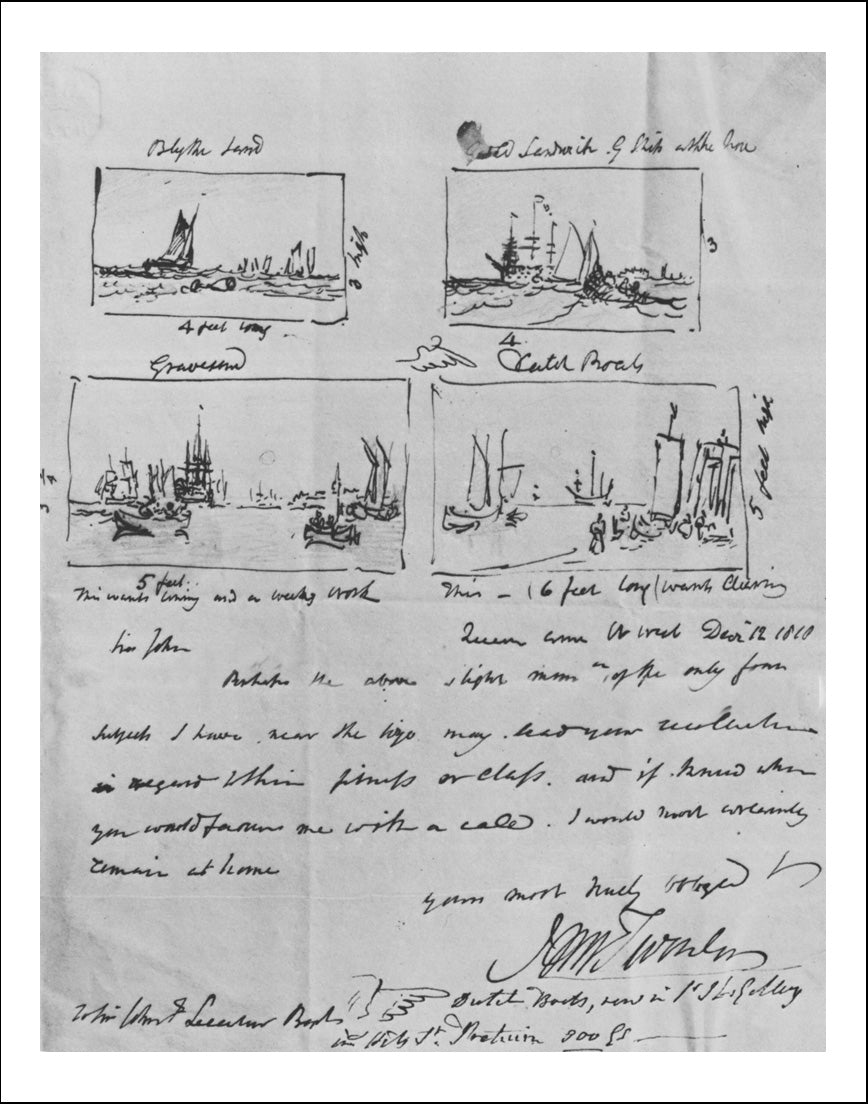 Blythe Sand
Sandwich Ships at the Nore
3 high
3
4 feet long
4
Gravesend
Dutch Boats
5 feet high
5 feet
This wants lining and a weeks work
This – (6 feet long) wants Cleaning
Sir John
Queen Anne St West Decr 12 1810
Perhaps the above slight mem of the only four
subjects I have near the size may lead your recollection
in regard to their fitness or class. and if I knew when
you would favour me with a call. I would most certainly
remain at home
yours most truly obliged
JMW Turner
To Sir John F Leicester Bart
Dutch Boats, now in Sir J L's Gallery
in Hill St. Pretium 300 Gs